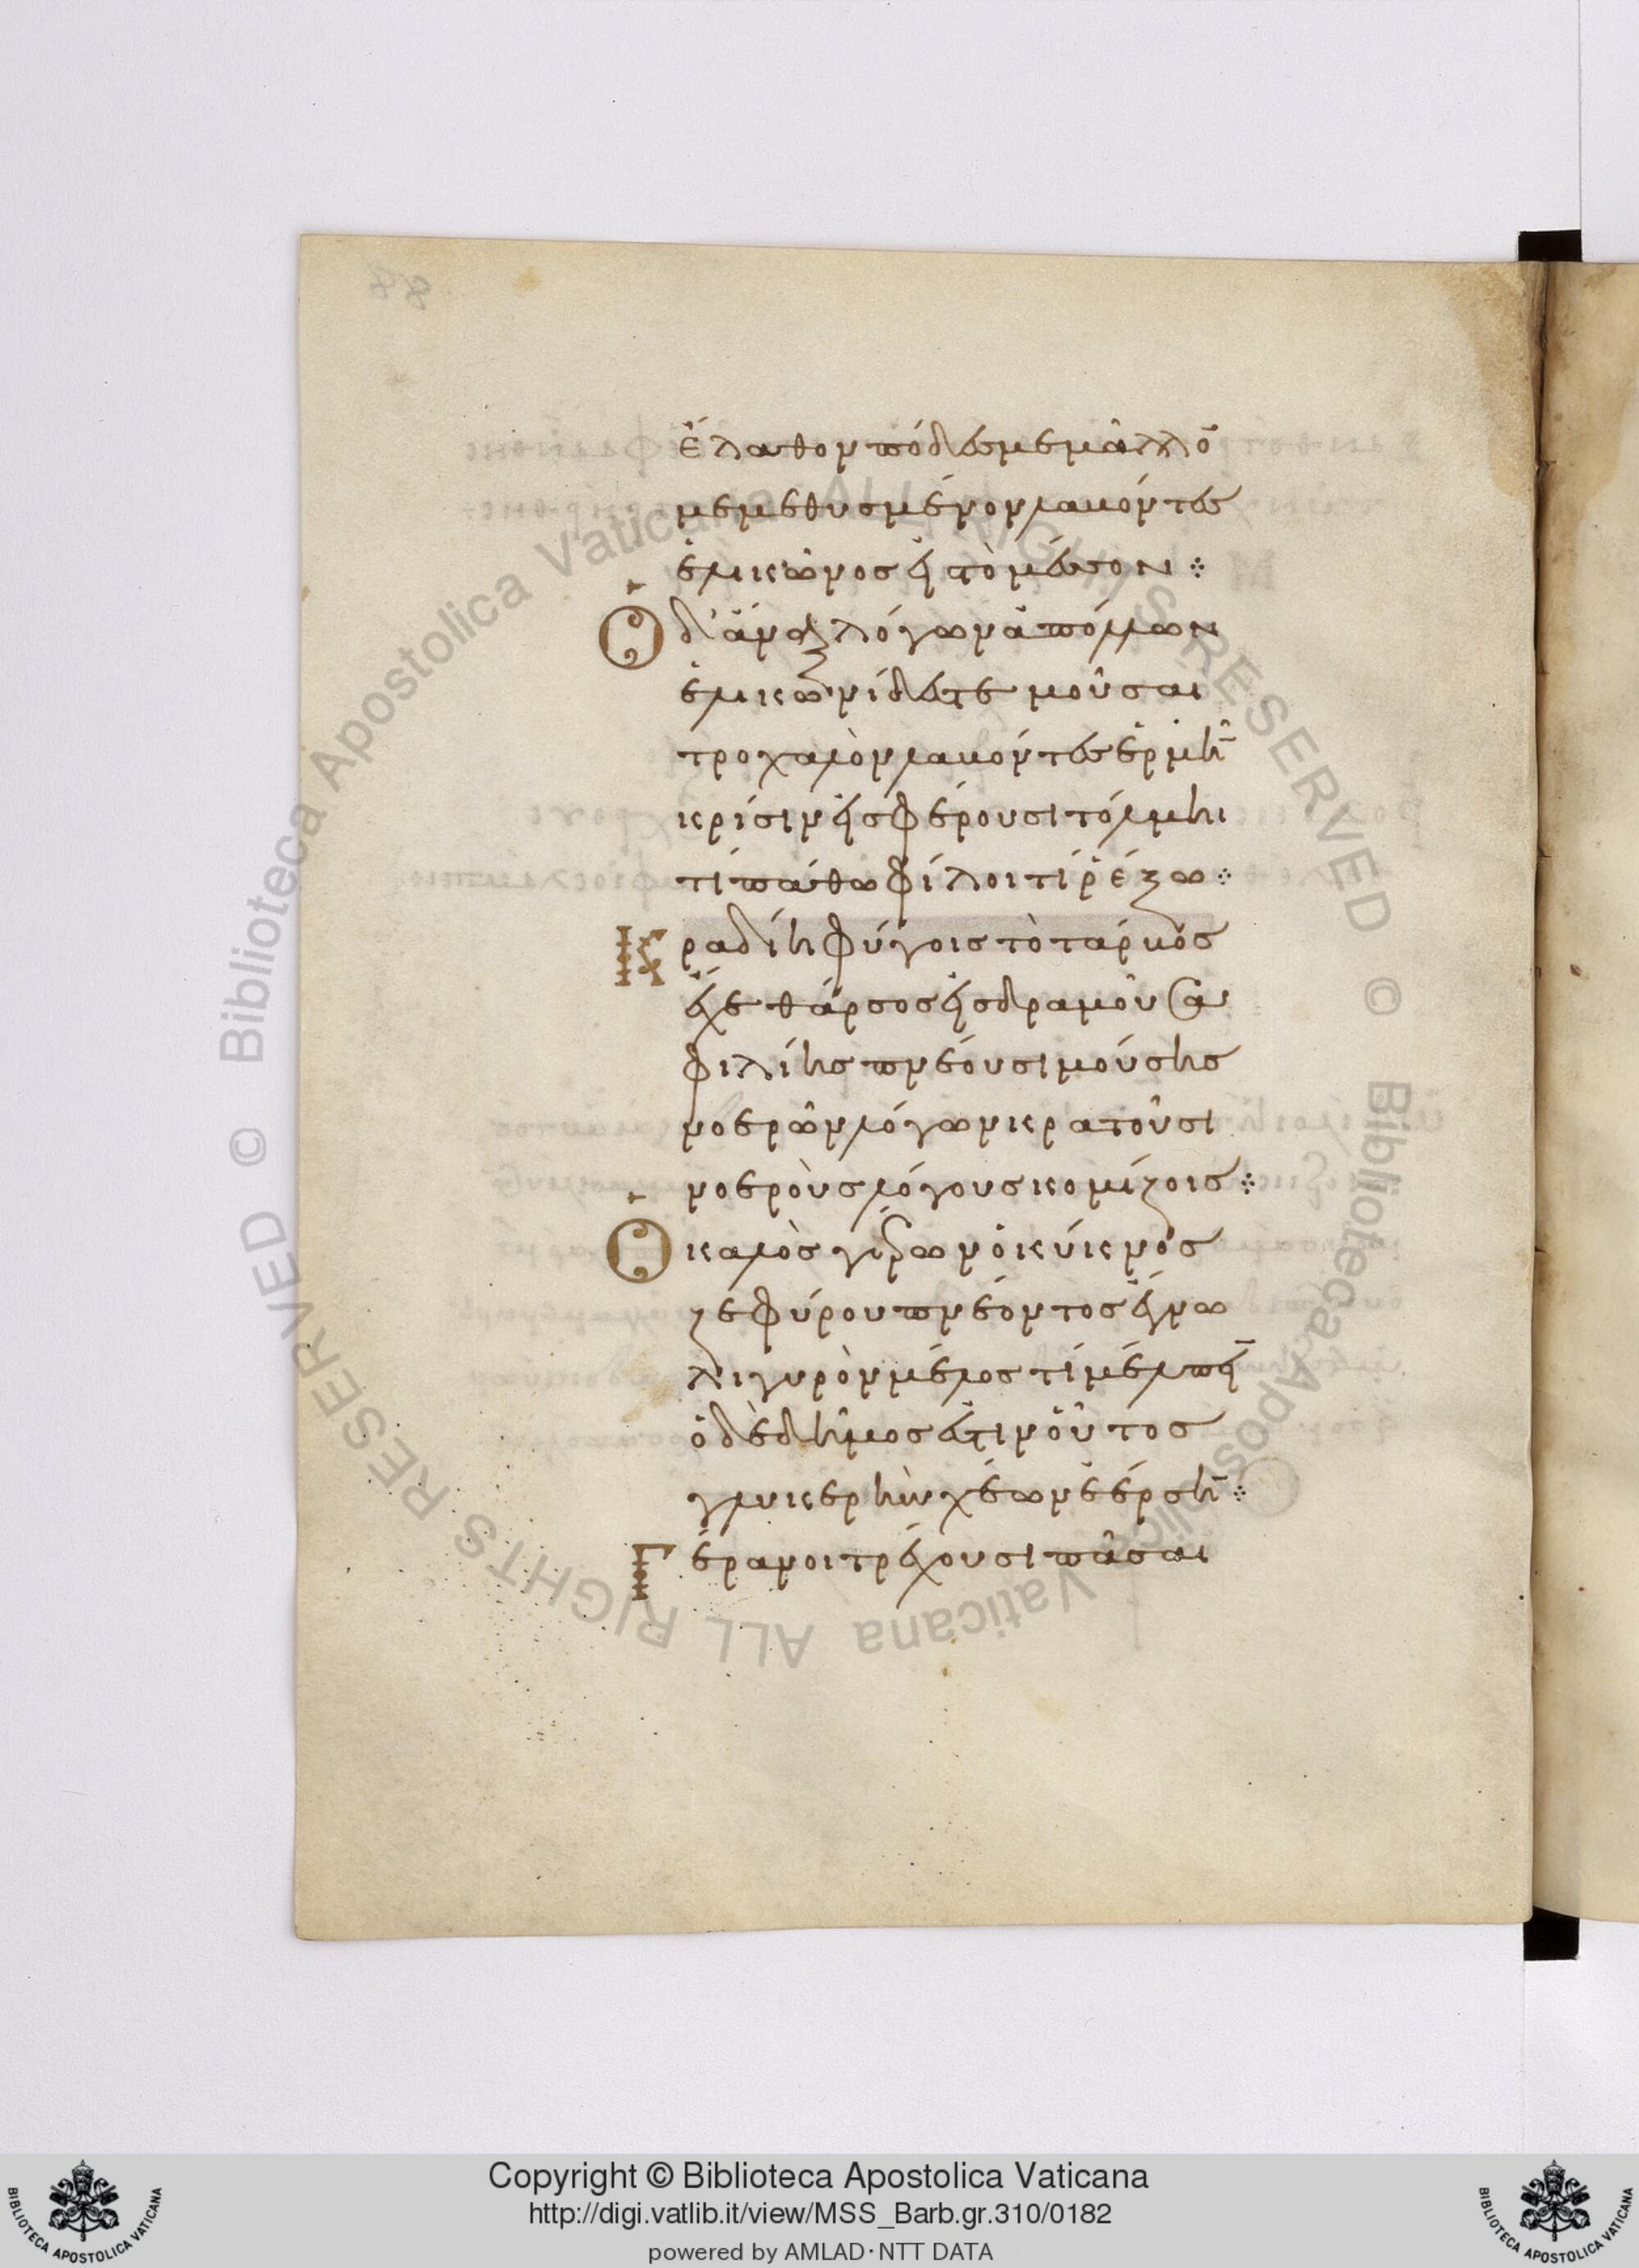 ἔλαθον πόδες με μᾶλλο̄
με μεθυσμένον λαχόντες
ἑλικῶνος εἰς τὸ μέσον ⁘
Ὁ δ' ἄναξ λόγων ἀπόλλων
ἑλικωνίδες τε μοῦσαι
τροχαλὸν λαχόντες ἑρμῆ̄
κρίσιν εἰσφέρουσι τόλμηι
τί πάθω φίλοι τί ῥέξω ⁘
Κραδίη φύγοις τὸ τάρχος
ἔχε θάρσος εἰσδραμοῦσα
φιλίης πνέουσι μούσης
νοερῶν λόγων κρατοῦσι
νοεροὺς λόγους κομίζοις ⁘
Ὁ καλὸς γέρων ὁ κύκνος
ζεφύρου πνέοντος εἴνω
λιγυρὸν μέλος τί μέλπεῑ
ὁ δὲ δῆμος ἐστιν οὗτος
γλυκερὴν χέων ἐέρση̄ ⁘
Γέρανοι τρέχουσι πᾶσαι
Copyright © Biblioteca Apostolica Vaticana
http://digi.vatlib.it/view/MSS_Barb.gr.310/0182
powered by AMLAD·NTT DATA
BIBLIOTECA APOSTOLICA VATICANA
BIBLIOTECA APOSTOLICA VATICANA
© Biblioteca Apostolica Vaticana ALL RIGHTS RESERVED
© Biblioteca Apostolica Vaticana ALL RIGHTS RESERVED